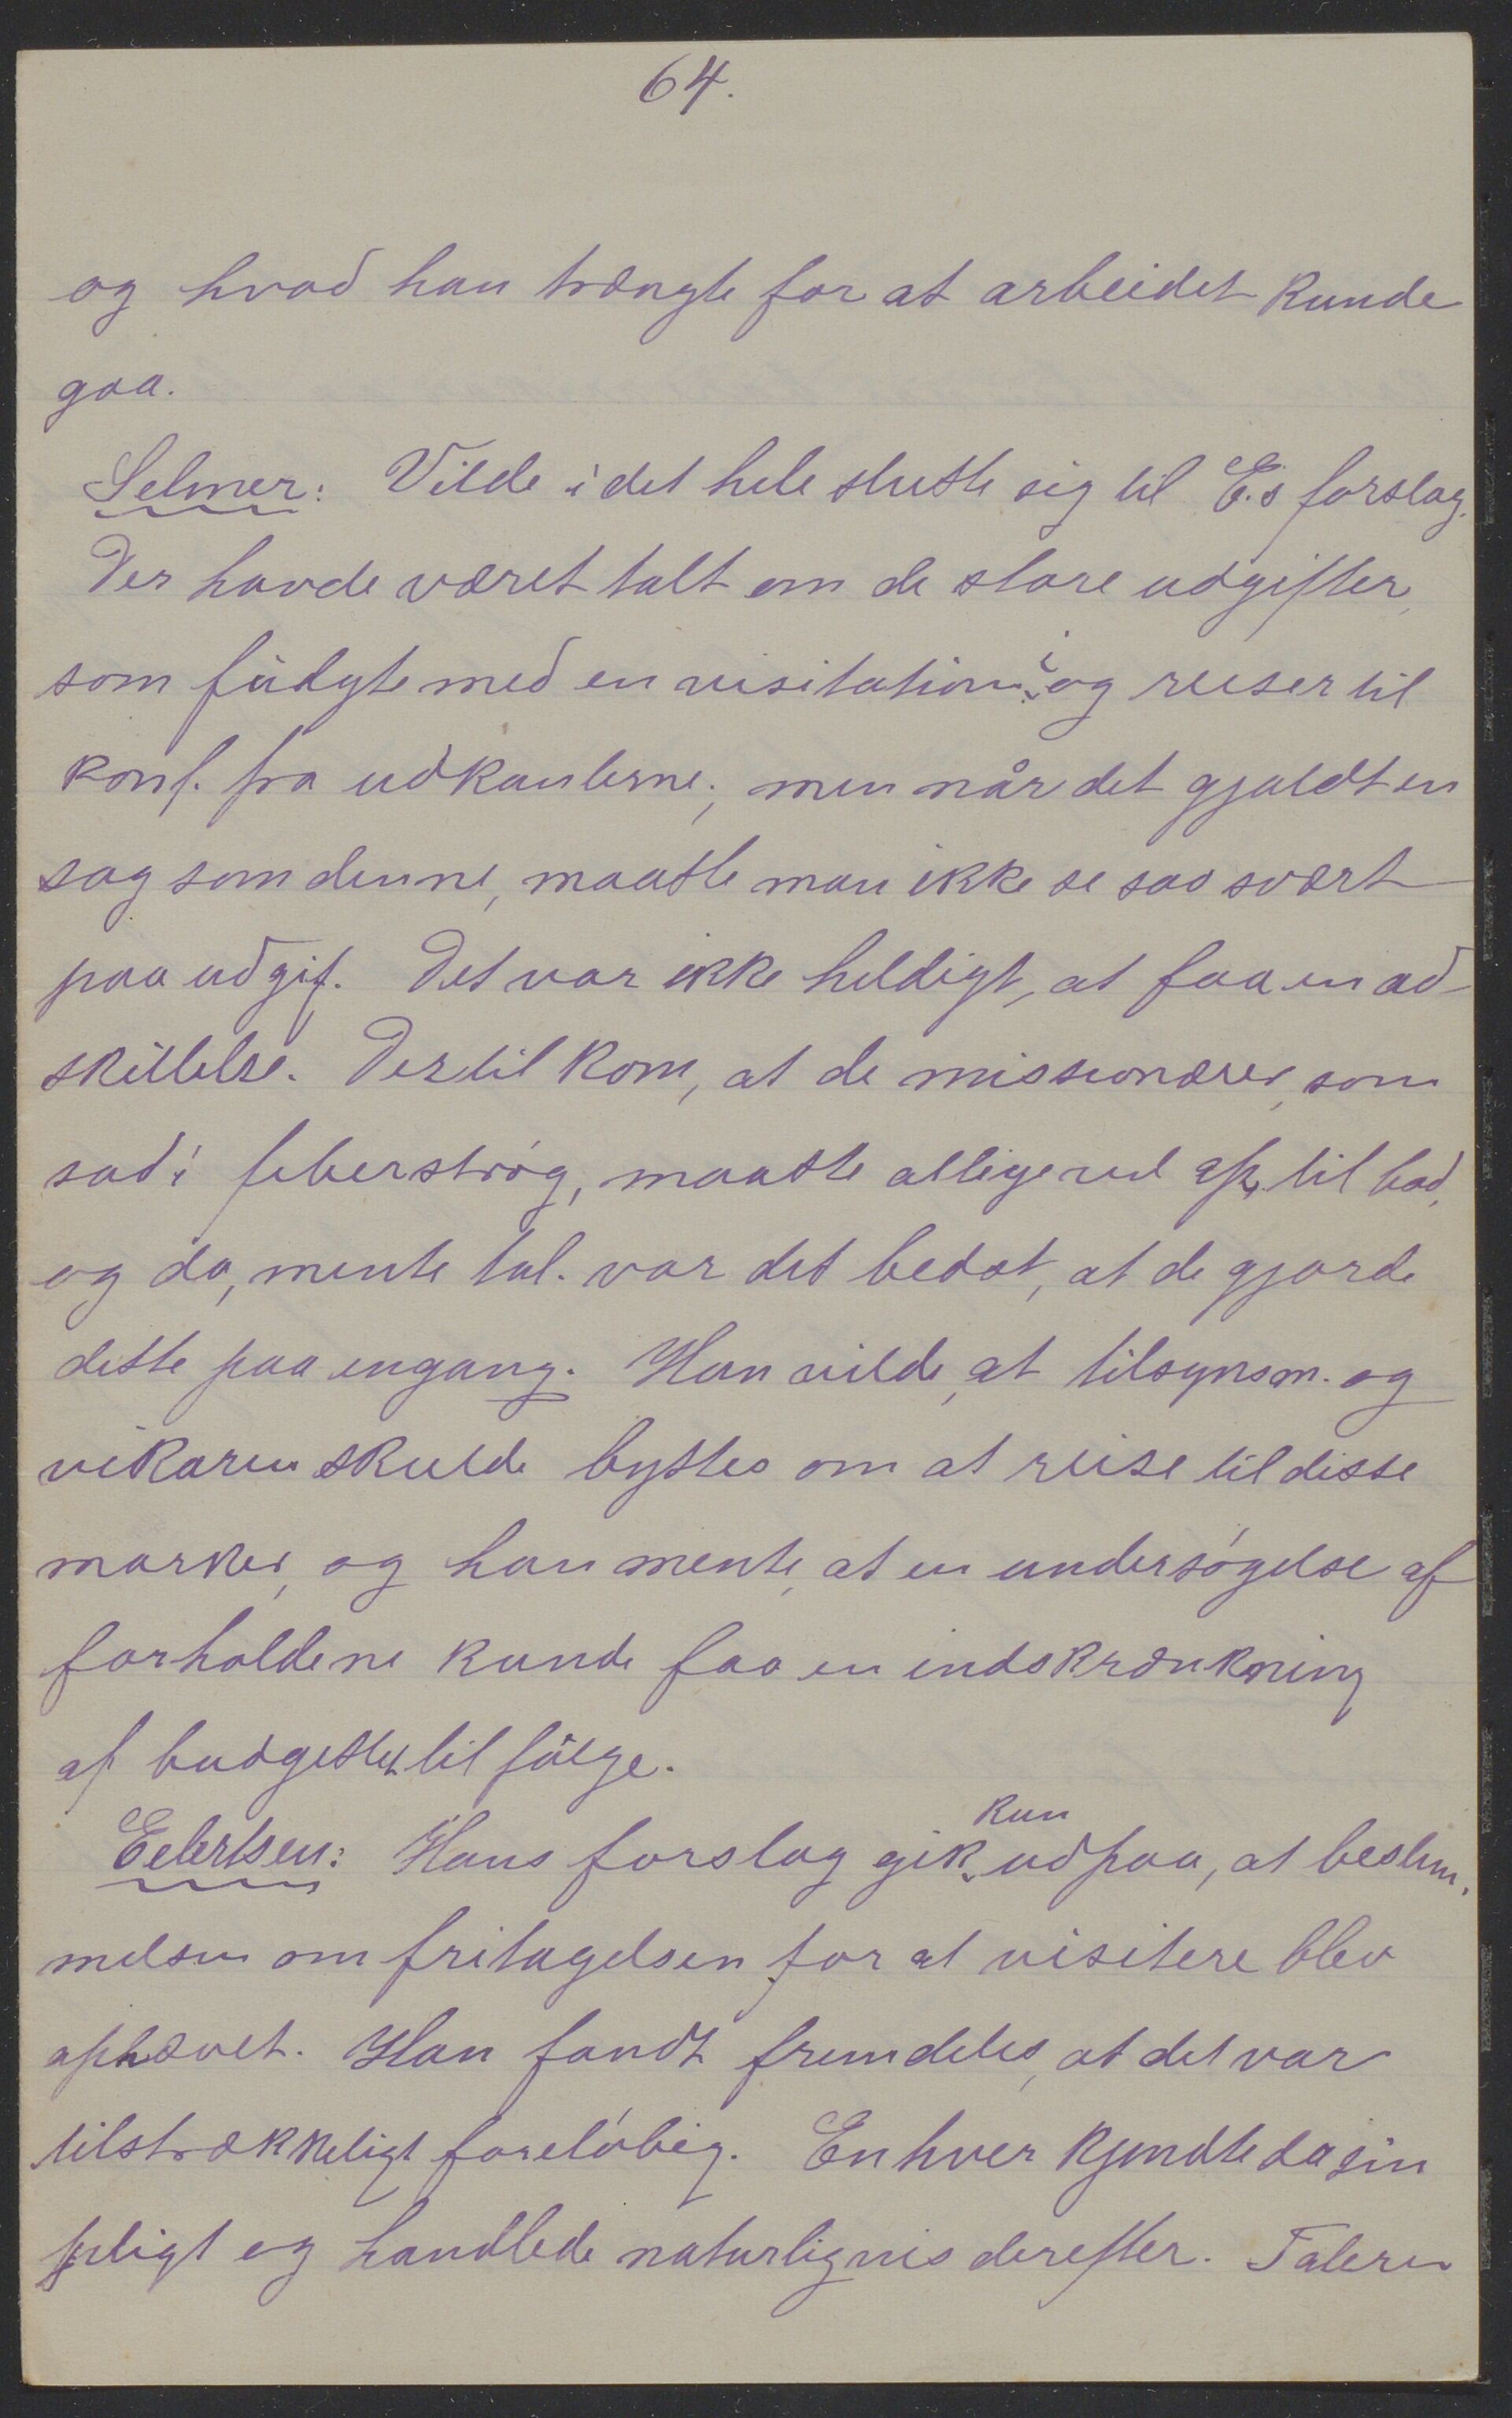 64.
og hvad han trængte for at arbeidet kunde
gaa.
Selmer: Vilde i det hele slutte sig til E.s forslag.
Der havde været talt om de store udgifter,
som fulgte med en visitation og reiser til
konf. fra udkanterne; men når det gjaldt en
sag som denne, maatte man ikke se saa svært
paa udgif. Det var ikke heldigt, at faa en ad-
skillelse. Dertil kom, at de missionærer, som
sad i feberstrøg, maatte alligevel til bad,
og da, mente tal. var det bedst, at de gjorde
dette paa engang. Han vilde, at tilsynsm. og
vikaren skulde byttes om at reise til disse
marker, og han mente, at en undersøgelse af
forholdene kunde faa en indskrænkning
af budgettet til følge.
Eilertsen: Hans forslag gik kun ud paa, at bestem-
melsen om fritagelsen for at visitere blev
ophævet. Han fandt fremdeles, at det var
tilstrækkeligt foreløbig. Enhver kjendte da sin
pligt og handlede naturligvis derefter. Taleren